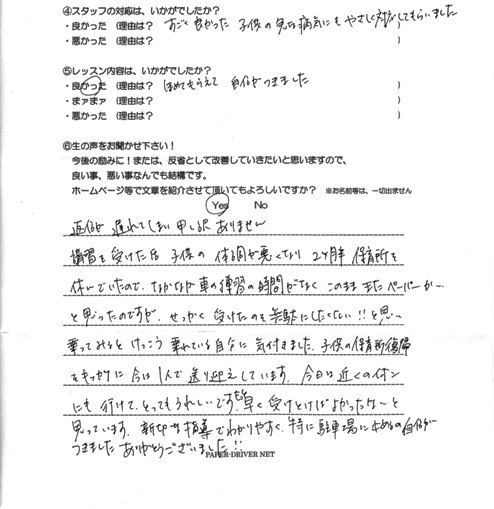 ④スタッフの対応は、いかがでしたか？
・良かった （理由は？ すごく良かった 子供の急な病気にもやさしく対応してもらいました
・悪かった （理由は？ ）
⑤レッスン内容は、いかがでしたか？
・良かった （理由は？ ほめてもらえて 自信がつきました ）
・まァまァ （理由は？ ）
・悪かった （理由は？ ）
⑥生の声をお聞かせ下さい！
今後の励みに！または、反省として改善していきたいと思いますので、
良い事、悪い事なんでも結構です。
ホームページ等で文章を紹介させて頂いてもよろしいですか？ ※お名前等は、一切出ません
Yes No
返信が 遅れてしまい 申し訳ありません
講習を受けた后 子供の 体調が悪くなり 2ヶ月半 保育所を
休んでいたので、なかなか 車の練習の時間がなく このまま またペーパーか…
と思ったのですが、せっかく 受けたのを無駄にしたくない!! と思い
乗ってみると けっこう 乗れている自分に 気付きました。子供の保育所復帰
をきっかけに 今は 1人で 送り迎えしています。今日は 近くのイオン
にも 行けて、とってもうれしいです。もっと早く 受けとけばよかったな〜と
思っています。親切な指導でわかりやすく、特に 駐車場に止めるの自信が
つきました ありがとうございました!!
PAPER-DRIVER NET